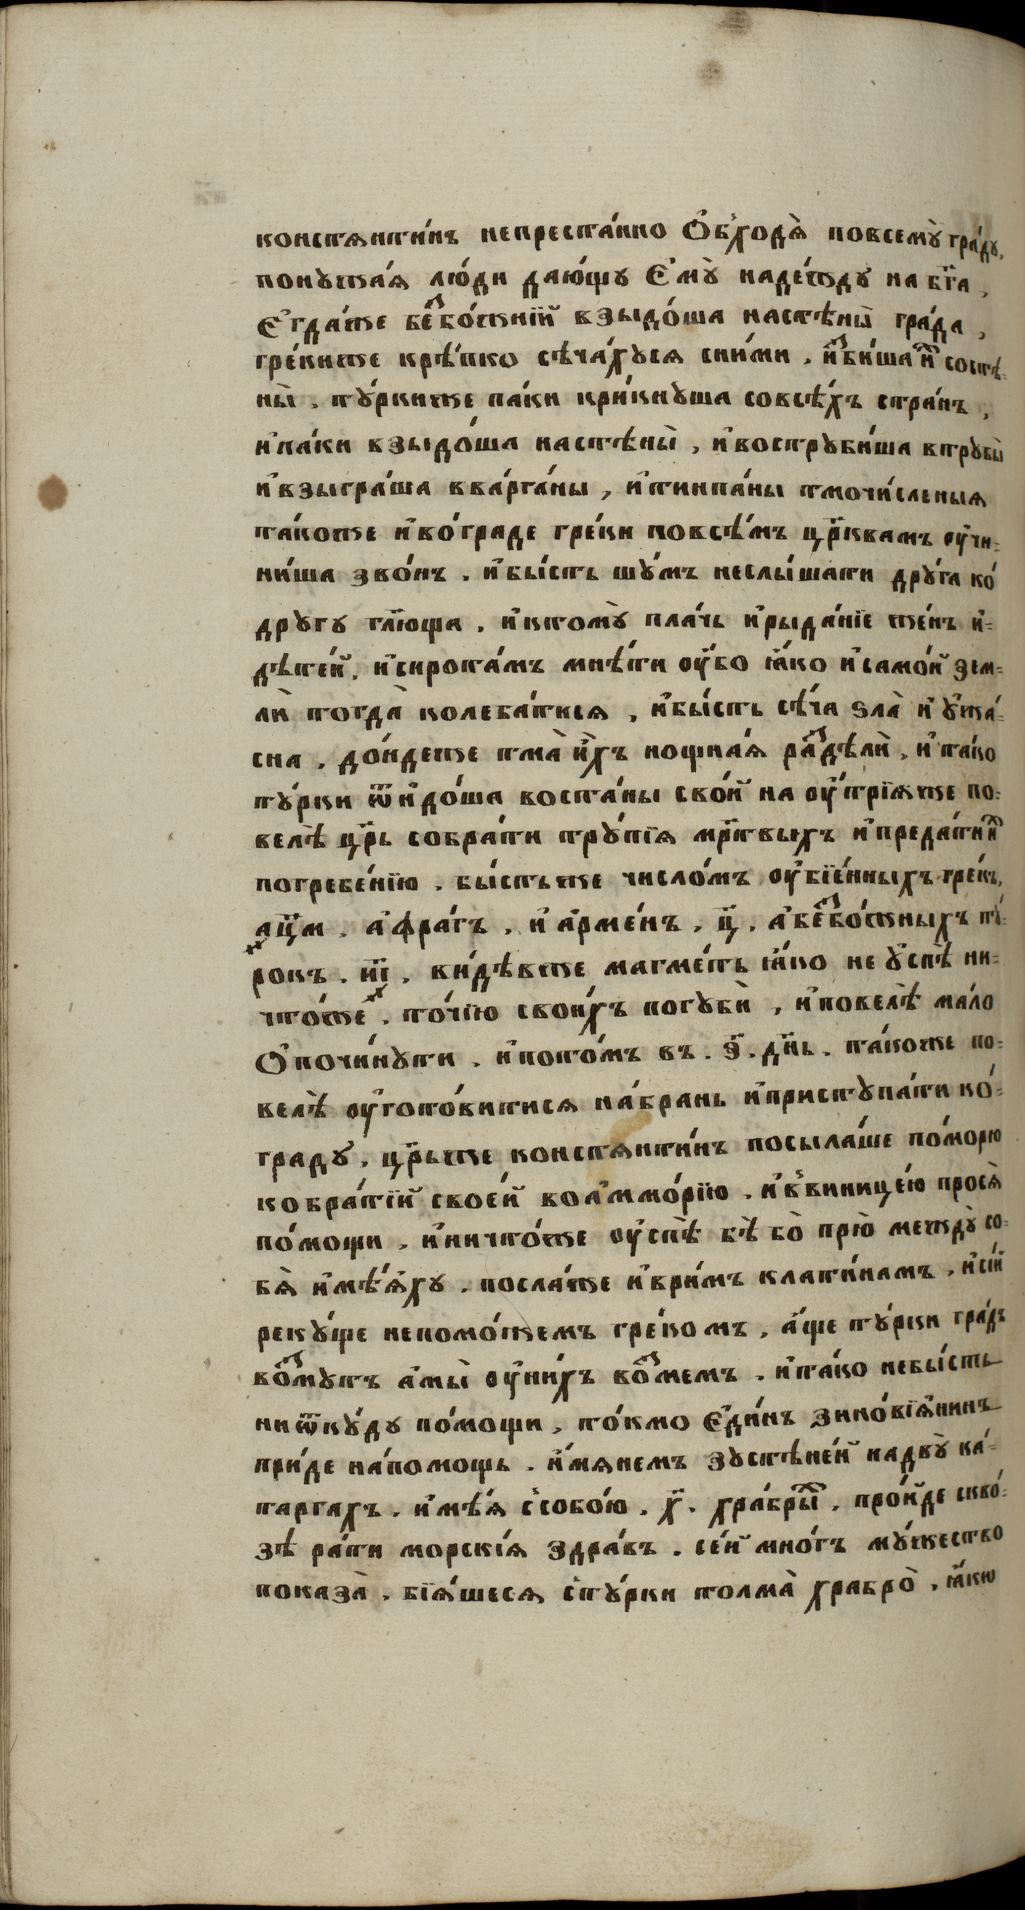 констѧнти́нъ непреста́нно Ѻ҆бходѧ̀ повсемꙋ̀ гра́дꙋ,
понꙋжа́ѧ лю́ди даю́щꙋ Є҆мꙋ̀ наде́ждꙋ на бг҃а ,
Є҆гда́же беⷥбо́жнїй взыдо́ша настѣны̀ гра́да ,
гре́киже крѣ́пко сѣча́хꙋсѧ сни́ми . и҆ⷥби́ша иⷯ состѣ-
ны̀ . тꙋ́ркиже па́ки кри́кнꙋша совсѣ́хъ стра́нъ ,
и҆па́ки взыдо́ша настѣны̀ , и҆вострꙋби́ша втрꙋбы̀
и҆взыгра́ша вварга́ны , и҆тинпа́ны тмочи́сленыѧ
та́коже и҆во́граде гре́ки повсѣ́мъ цр҃квамъ ᲂу҆чи-
ни́ша зво́нъ . и҆бы́сть шꙋ́мъ неслы́шати дрꙋ́га ко́
дрꙋгꙋ гл҃юща . и҆ктомꙋ̀ пла́чь и҆рыда́нїе же́нъ и҆-
дѣте́й , и҆сирота́мъ мнѣ́ти ᲂу҆́бо ꙗ҆́ко и҆само́й зем-
лѝ тогда̀ колеба́тисѧ , и҆бы́сть сѣ́ча ѕла̀ и҆ ᲂу҆жа́-
сна . до́ндеже тма̀ и҆́хъ нощна́ѧ раⷥдѣлѝ , и҆та́ко
тꙋ́рки ѿидо́ша востаны̀ своѝ на ᲂу҆́трїѧже по-
велѣ̀ цр҃ь собра́ти трꙋ́пїѧ мр҃твыхъ и҆преда́ти иⷯ
погребе́нїю . бы́стьже число́мъ ᲂу҆бїе́нныхъ гре́къ,
҂аѱ҃м . а҆фра́гъ , и҆ а҆рме́нъ , ѱ҃ , а҆беⷥбо́жныхъ тꙋ́-
рокъ . ҂и҃і , ви́дѣвже магме́ть ꙗ҆́ко не ᲂу҆спѣ̀ ни-
что́же , то́чїю свои́хъ погꙋбѝ , и҆повелѣ̀ ма́ло
Ѻ҆почи́нꙋти . и҆пото́мъ въ . ѳ҃ . дн҃ь . та́коже по-
велѣ̀ ᲂу҆гото́витисѧ на́брань и҆пристꙋпа́ти ко́-
градꙋ , цр҃ьже констѧнти́нъ посыла́ше по́морю
ко бра́тїй свое́й вола҆ммо́рїю . и҆ в҆виницею̀ просѧ̀
по́мощи . и҆ничто́же ᲂу҆спѣ̀ бѣ̀ бо̀ прю̀ междꙋ̀ со-
бѧ̀ и҆мѣ́ѧхꙋ . посла́же и҆ври́мъ клати́намъ , и҆сїѝ
рекꙋ́ще непомо́жемъ гре́комъ , а҆́ще тꙋ́рки гра́дъ
воⷥмꙋтъ а҆мы̀ ᲂу҆ни́хъ воⷥмемъ . и҆та́ко небы́сть
ниѿкꙋ́дꙋ по́мощи , то́кмо Є҆ди́нъ зиновїѧ́нинъ
прїи́де на́помощь . и҆́мѧнемъ зꙋстѣне́й надвꙋ̀ ка́-
таргахъ . и҆мѣ́ѧ ссобо́ю . х҃ . хра́брыⷯ . про́йде скво́-
зѣ ра́ти морскі́ѧ здра́въ . се́й мно́гъ мꙋ́жество
показа̀ . бїѧ́шесѧ стꙋ́рки толма̀ храбро̀ . ꙗ҆́кѡ